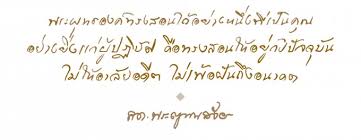 พระพุทธองค์ทรงสอนไว้อย่างหนึ่งที่เป็นคุณ
อย่างยิ่งแก่ผู้ปฏิบัติ คือทรงสอนให้อยู่กับปัจจุบัน
ไม่ให้อาลัยอดีต ไม่เพ้อฝันถึงอนาคต